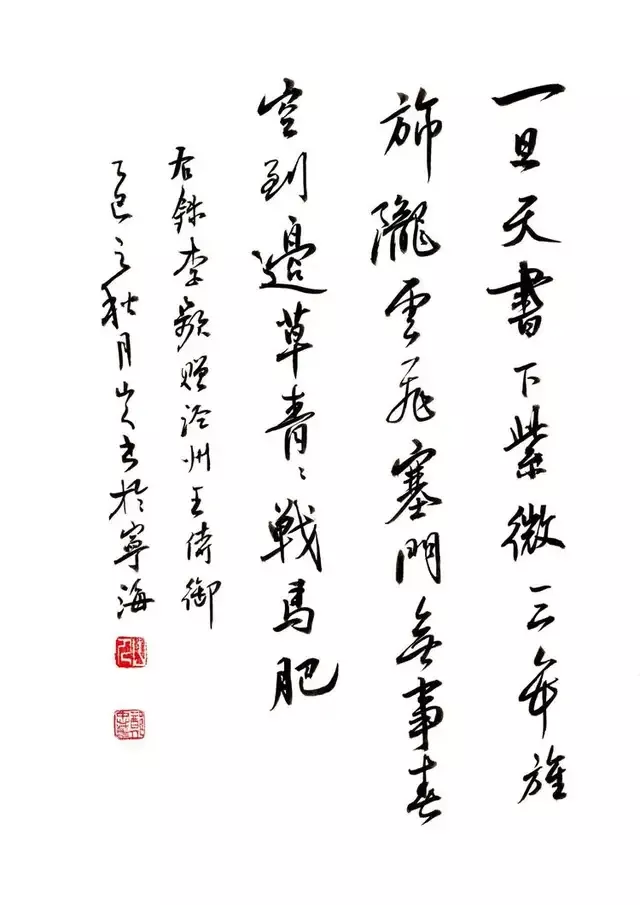 一旦天書下紫微三年旌
旆隴雲飛塞門無事春
空到邊草青々戦馬肥
右錄李頻贈泾州王侍御
乙巳之秋月书於寧海